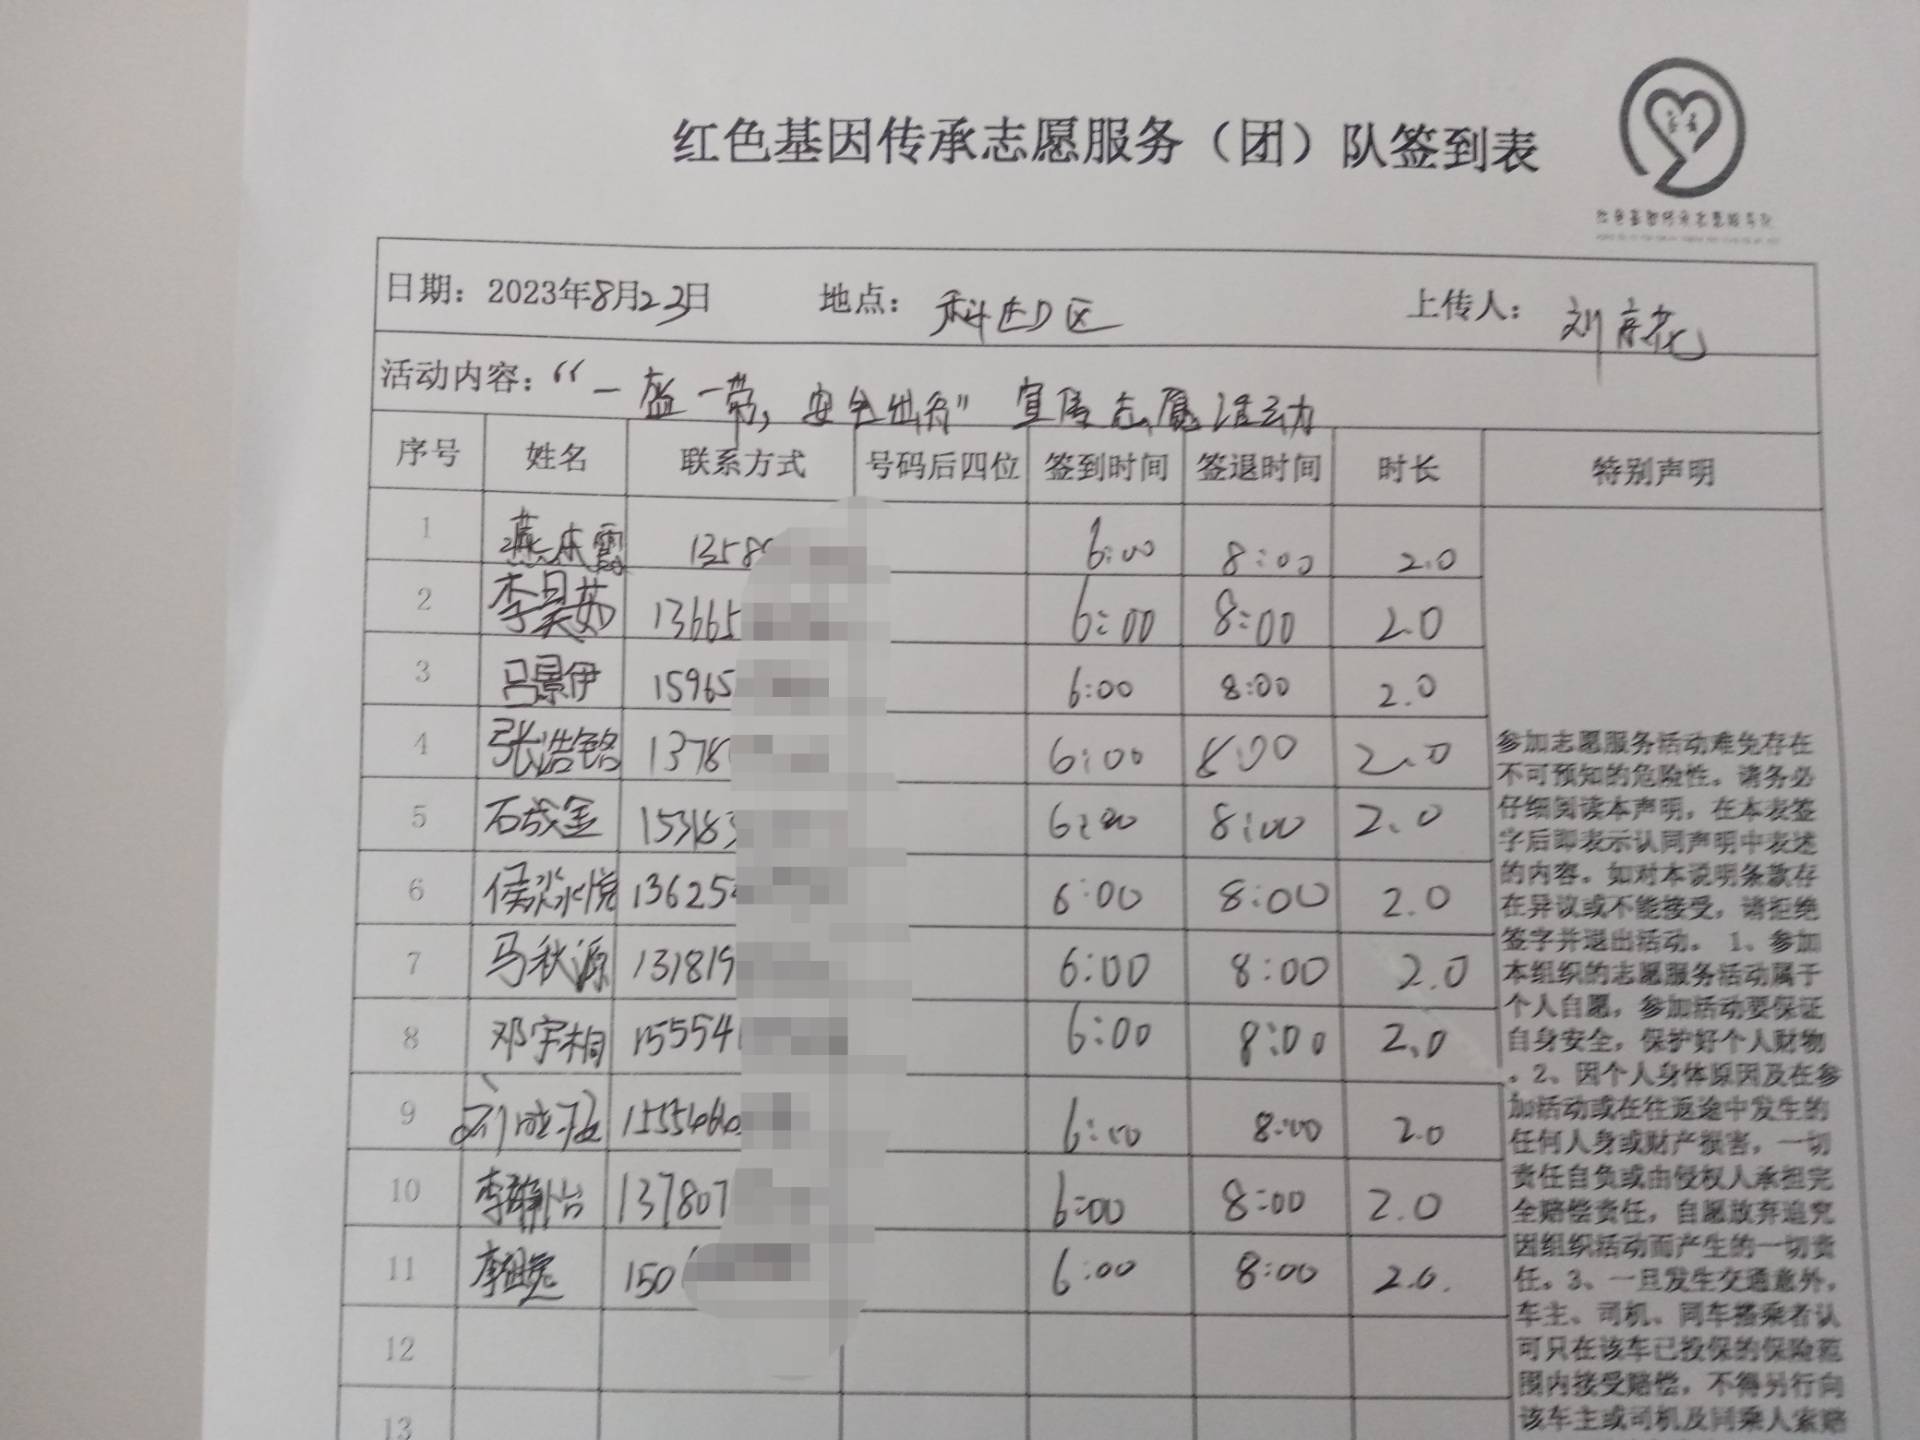 红色基因传承志愿服务（团）队签到表
日期：2023年8月23日 地点：科达D区 上传人：刘彦花
活动内容：“一盔一带，安全出行”宣传志愿活动
序号 姓名 联系方式 号码后四位 签到时间 签退时间 时长 特别声明
1 燕本霞 1358 6:00 8:00 2.0
2 李昊茹 13665 6:00 8:00 2.0
3 吕景伊 15965 6:00 8:00 2.0
4 张浩铭 1378 6:00 8:00 2.0
5 石成金 153183 6:00 8:00 2.0
6 侯淼悦 13625 6:00 8:00 2.0
7 马秋源 131819 6:00 8:00 2.0
8 邓宇桐 15554 6:00 8:00 2.0
9 1555460 6:00 8:00 2.0
10 李静怡 137807 6:00 8:00 2.0
11 150 6:00 8:00 2.0.
12
13
参加志愿服务活动难免存在
不可预知的危险性。请务必
仔细阅读本声明，在本表签
字后即表示认同声明中表述
的内容。如对本说明条款存
在异议或不能接受，请拒绝
签字并退出活动。1、参加
本组织的志愿服务活动属于
个人自愿，参加活动要保证
自身安全，保护好个人财物
。2、因个人身体原因及在参
加活动或在往返途中发生的
任何人身或财产损害，一切
责任自负或由侵权人承担完
全赔偿责任，自愿放弃追究
因组织活动而产生的一切责
任。3、一旦发生交通意外，
车主、司机、同车搭乘者认
可只在该车已投保的保险范
围内接受赔偿，不得另行向
该车主或司机及同乘人索赔